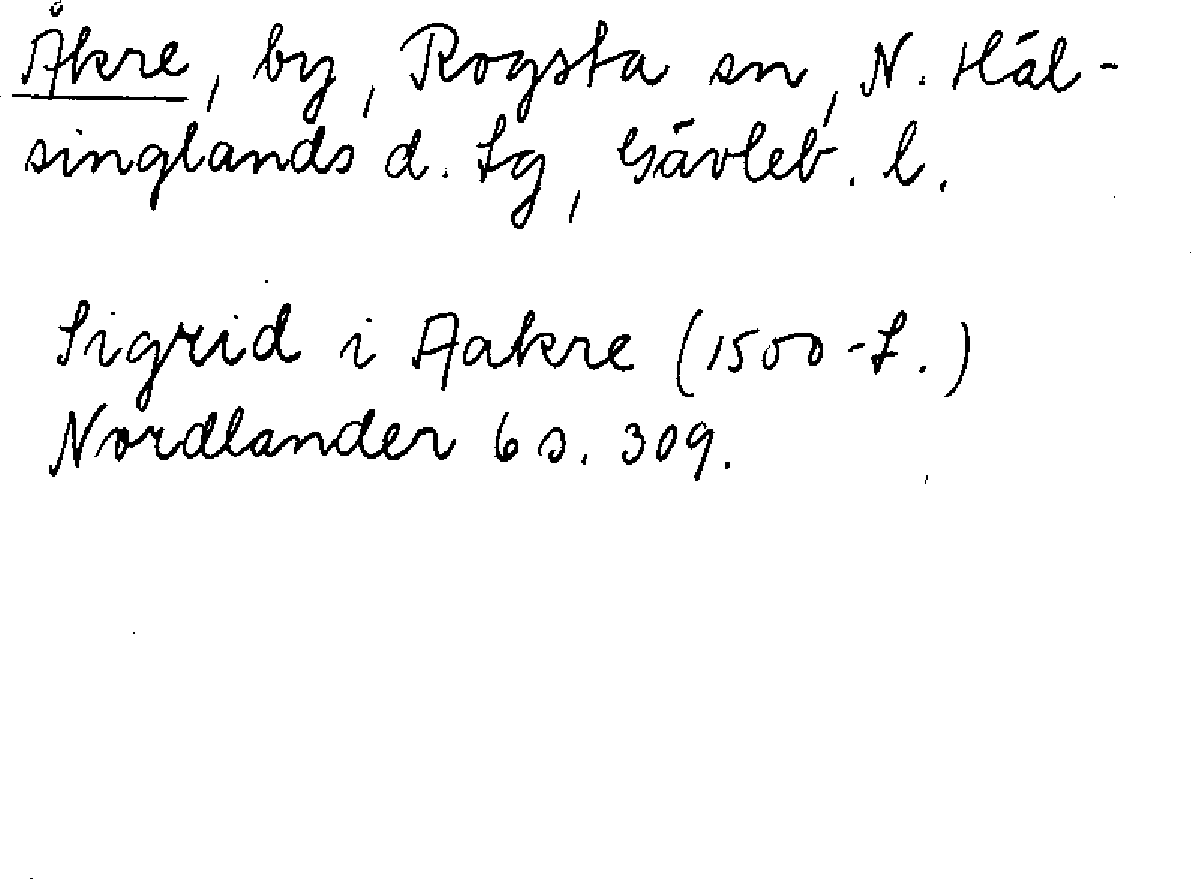 Åkre, by, Rogsta sn, N. Häl-
singlands d. Sg, Gävleb. l.
Sigrid i Aakre (1500-t.)
Nordlander 6 s. 309.